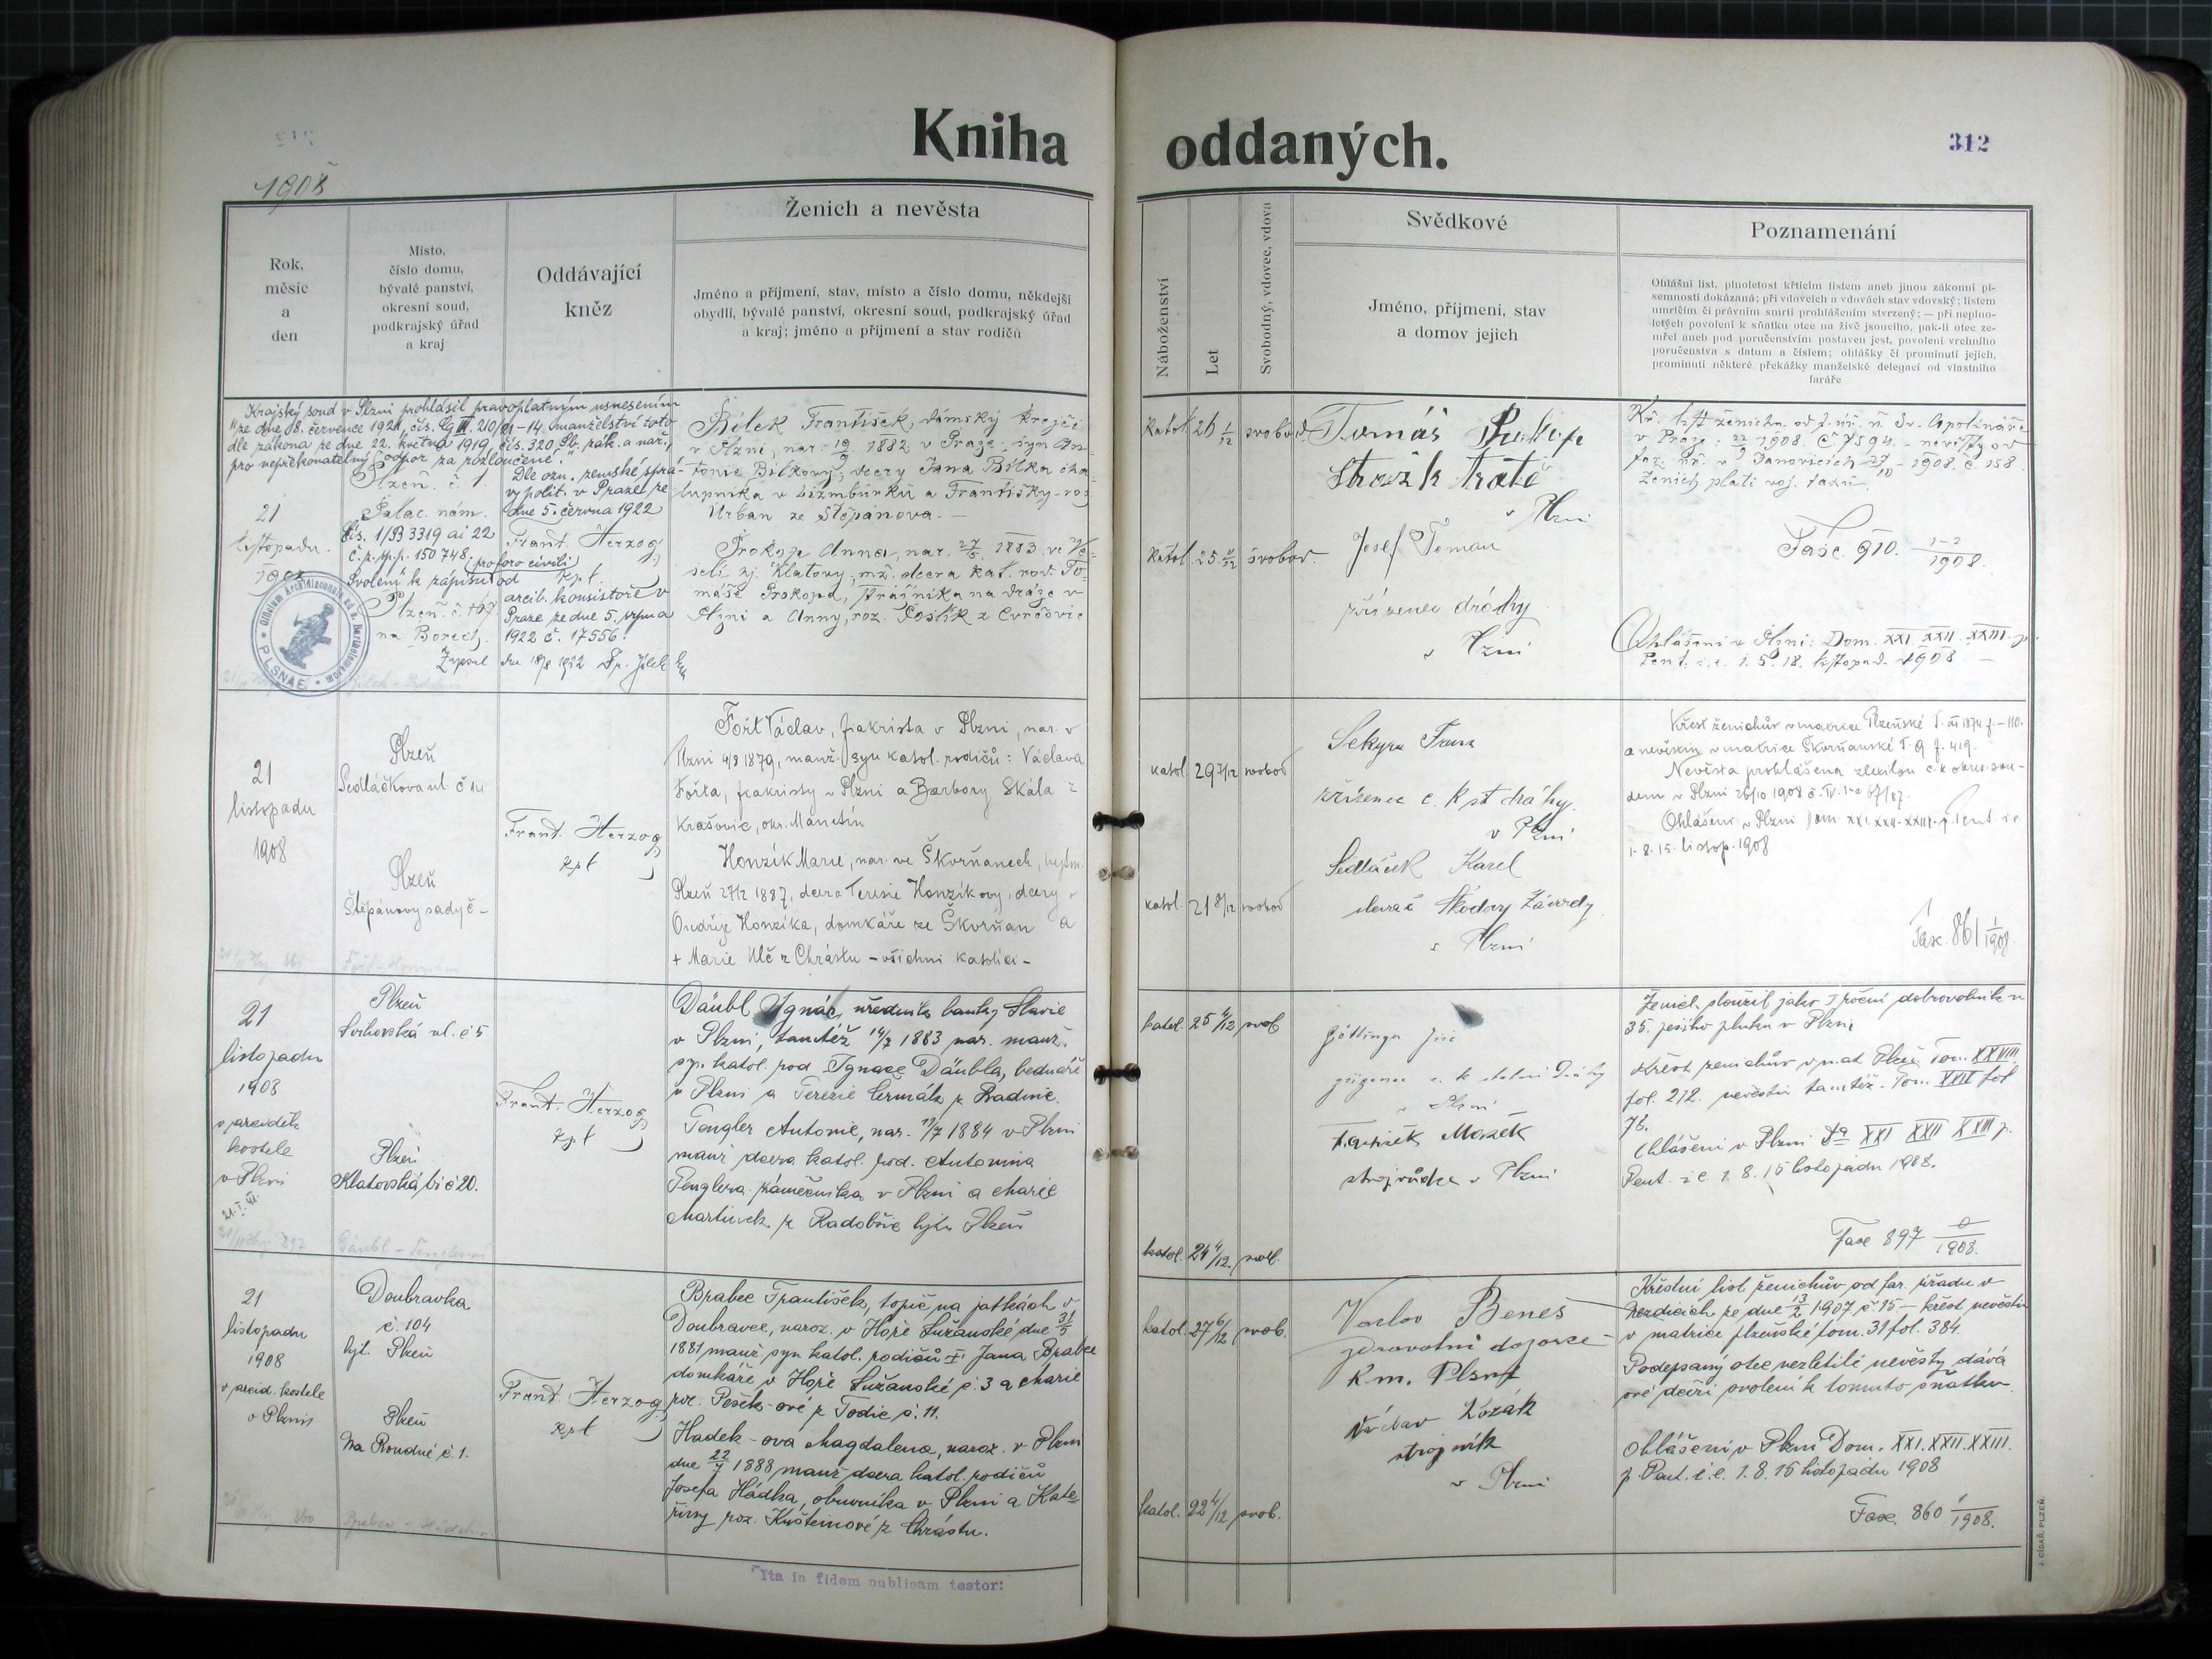 Kniha oddaných.
312
1908
Rok,
měsíc
a
den
Místo,
číslo domu,
bývalé panství,
okresní soud,
podkrajský úřad
a kraj
Oddávající
kněz
Ženich a nevěsta
Jméno a příjmení, stav, místo a číslo domu, někdejší
obydlí, bývalé panství, okresní soud, podkrajský úřad
a kraj; jméno a příjmení a stav rodičů
Náboženství
Let
Svobodný, vdovec, vdova
Svědkové
Jméno, příjmení, stav
a domov jejich
Poznamenání
Ohlášní list, plnoletost křticím listem aneb jinou zákonní pí-
semností dokázaná; při vdovcích a vdovách stav vdovský; listem
umrlčím či právním smrti prohlášením stvrzený; — při neplno-
letých povolení k sňatku otce na živě jsoucího, pak-li otec ze-
mřel aneb pod poručenstvím postaven jest, povolení vrchního
poručenstva s datum a číslem; ohlášky či prominutí jejich,
prominutí některé překážky manželské delegací od vlastního
faráře
Krajský soud v Plzni prohlásil pravoplatným usnesením
ze dne 18. července 1921, čís. Cg III. 210/21-14 manželství toto
dle zákona ze dne 22. května 1919, čís. 320, Sb. zák. a nař.,
pro nepřekonatelný odpor za rozloučené."
Dle ozn. zemské sprá-
vy polit. v Praze ze
dne 5. června 1922
čís. 1/B 3319 ai 22
č. p. m. p. 150748. (pro foro civili)
Svolení k zápisu od
arcib. konsistoře v
Praze ze dne 5. srpna
1922 č. 17556.
Zapsal dne 18/8 1922
21
listopadu
1908
Plzeň č. 1
Palac. nám.
Plzeň č.
na Borech.
Frant. Herzog
kpt
PLSNAE
Bílek František, dámský krejčí
v Plzni, nar. 19/9 1882 v Praze, syn An-
tonie Bílkový, dcery Jana Bílka cha-
lupníka v Lizmbúrků a Františky roz.
Urban ze Štěpánova. —
Prokop Anna, nar. 27/5 1883 ve Ve-
selí zj. Klatovy, mž. dcera kat. rod. To-
máše Prokopa, strážníka na dráze v
Plzni a Anny, roz.
katol. 26 1/12 svobod.
katol. 25 svobod.
Tomáš Prokop
Strážník tratě
v Plzni
Josef Toman
zřízenec dráhy
v Plzni
Kř. list ženicha od f. úř. u Sv. Apolináře
v Praze: 22/9 1908. č. 7594. — nevěsty od
far. úř. v Janovicích 27/10 1908. č. 158.
Ženich platí voj. taxu.
Fasc. 910. 1-2/1908.
Ohlášeni v Plzni: Dom. XXI. XXII. XXIII. p.
Pent. i. e. 1. 8. 18. listopad. 1908 —
21
listopadu
1908
Plzeň
Sedláčkova ul. č 14
Plzeň
Štěpánovy sady č —
Frant. Herzog
kpt
Fořt Václav, fiakrista v Plzni, nar. v
Plzni 4/3 1879, manž. syn katol. rodičů: Václava
Fořta, fiakristy v Plzni a Barbory Skála z
Krašovic, okr. Manětín
Honzík Marie, nar. ve Škvrňanech, hejtm.
Plzeň 27/2 1887, dcera Terezie Honzíkovy, dcery
Ondřeje Honzíka, domkáře ze Škvrňan a
+ Marie Ulč z Chrástu — všichni katolíci —
katol. 29 7/12 svobod
katol. 21 8/12 svobod
Sekyra Franz
zřízenec c. k. st. dráhy
v Plzni
Sedláček Karel
dozor. Škodovy Závody
v Plzni
Křest ženichův v matrice Plzeňské T. 1874 f. — 110.
a nevěstin v matrice Škvrňanské T. 9 f. 419.
Nevěsta prohlášena zletilou c. k. okres. sou-
dem v Plzni 26/10 1908
Ohlášeni v Plzni Dom. XXI. XXII. XXIII. p. Pent i e
1. 8. 15. listop. 1908
Fasc. 861 1/1908.
21
listopadu
1908
v arciděk.
kostele
v Plzni
Plzeň
ul. č 5
Plzeň
Klatovská tř. č 20.
Frant. Herzog
kpt
Däubl Ignác, úředník banky Slavie
v Plzni, tamtéž 14/7 1883 nar. manž.
syn katol. rod Ignace Däubla, bednáře
v Plzni a Terezie Čermák z Radnic.
Tengler Antonie, nar. 19/7 1884 v Plzni
manž dcera katol. rod. Antonína
Tenglera zámečníka v Plzni a Marie
Martinek z Radobčic hejtm Plzeň
katol. 25 4/12 svob
katol. 24 4/12 svob.
Göttinger Jiří
zřízenec c. k. státní Dráhy
v Plzni
František Mašek
strojvůdce v Plzni
Ženich sloužil jako 1 roční dobrovolník u
35. pěšího pluku v Plzni
Křest ženichův v mat Plzeň Tom. XXVIII
fol. 212. nevěstin tamtéž. Tom. XXIX fol
78.
Ohlášeni v Plzni Dca XXI XXII XXIII p.
Pent. i e 1. 8. 15 listopadu 1908.
Fasc 897 /1908.
21
listopadu
1908
v arcid. kostele
v Plzni
Doubravka
č. 104
hejt. Plzeň
Plzeň
Na Roudné č 1.
Frant Herzog
kpt
Brabec František, topič na jatkách v
Doubravce, naroz. v Hoře Lužanské dne 31/5
1881 manž. syn katol. rodičů + Jana Brabce
domkáře v Hoře Lužanské č. 3 a Marie
roz. Pešek-ové z Todic č. 11.
Hadek-ova Magdalena, naroz. v Plzni
dne 22/7 1888 manž dcera katol. rodičů
Josefa Hádka, obuvníka v Plzni a Kate-
řiny roz. Kušteinové z Chrástu.
katol. 27 6/12 svob.
katol. 22 4/12 svob.
Vaclav Beneš
zdravotní dozorce
K. m. Plzně
Václav Kozák
strojník
v Plzni
Křestní list ženichův od far. úřadu v
Nezdicích ze dne 13/2 1907 č 15 — křest nevěstin
v matrice plzeňské tom. 31 fol. 384.
Podepsaný otec nezletilé nevěsty dává
své dceři svolení k tomuto sňatku.
Ohlášeni v Plzni Dom. XXI. XXII. XXIII.
p. Pent. i. e. 1. 8. 15 listopadu 1908
Fasc. 860 1/1908.
Ita in fidem publicam testor:
J. CÍSAŘ, PLZEŇ.